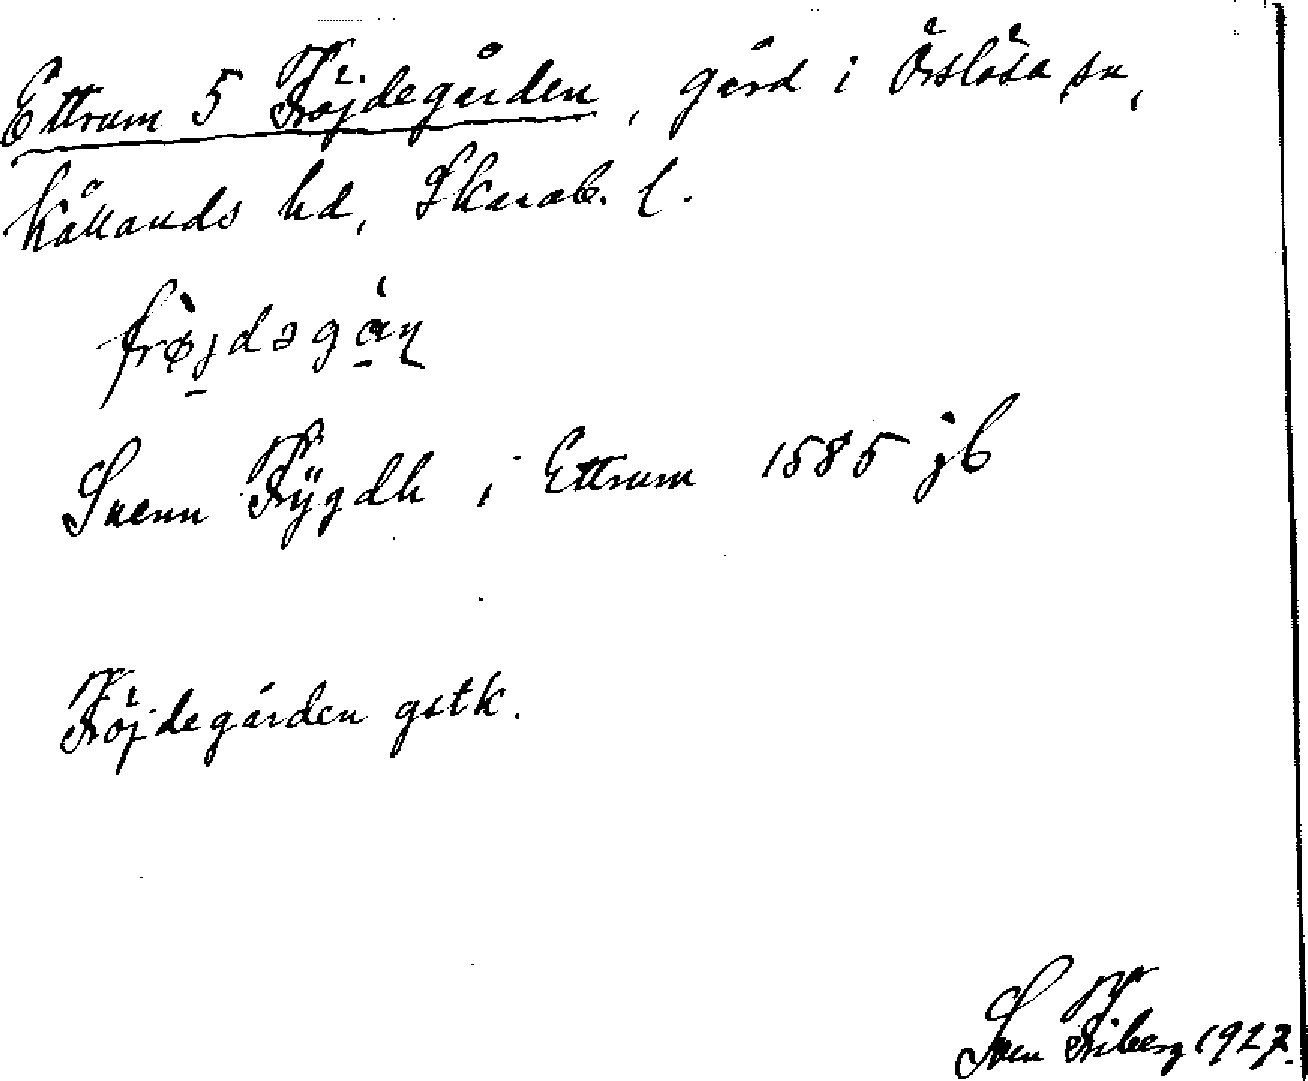 Ettrum 5 Fröjdegården, gård i Örslösa sn,
Kållands hd, Skarab. l.
frøjdəgån
Suenn Frÿgdh i Ettrum 1585 jb
Fröjdegården gstk.
Sven Friberg 1927.